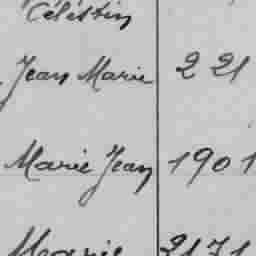 Célestin
Jean Marie 2 21
Marie Jean 1901
Marie 2171